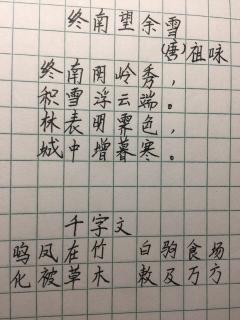 终南望余雪
(唐)祖咏
终南阴岭秀，
积雪浮云端。
林表明霁色，
城中增暮寒。
千字文
鸣凤在竹 白驹食场
化被草木 赖及万方